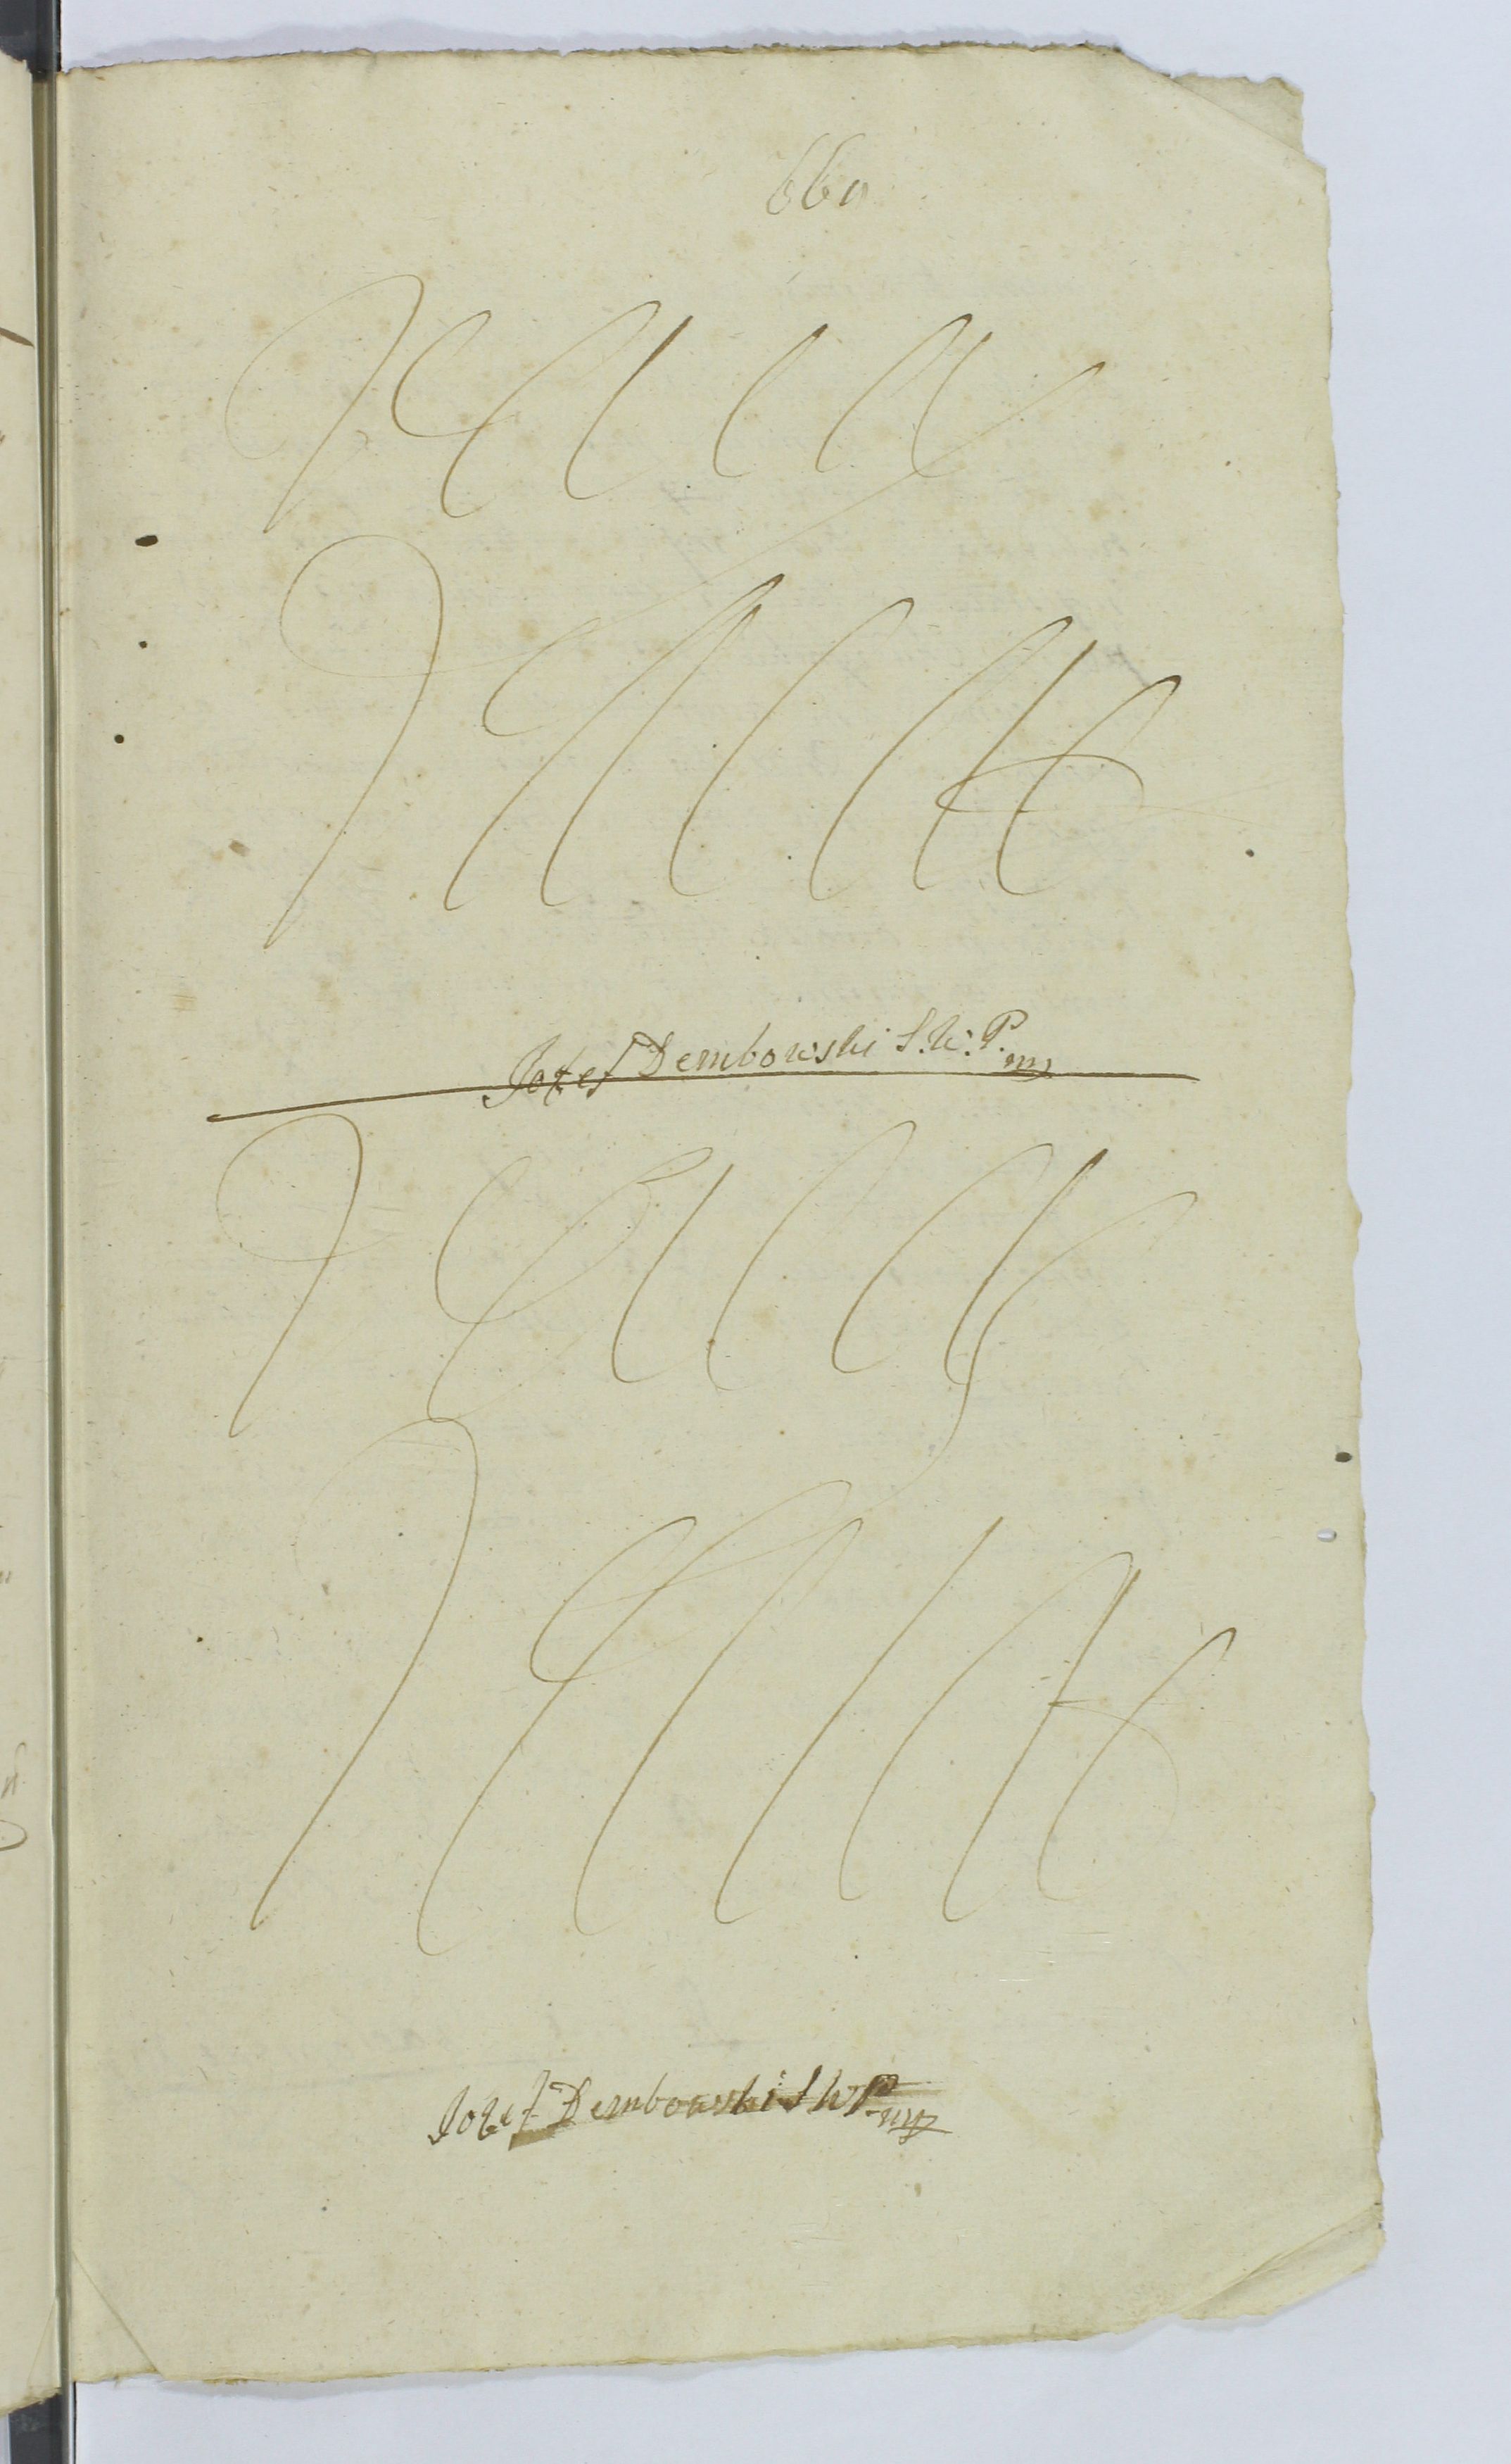 660
Jozef Dembowski S. W. P. mp
Jozef Dembowski S W P mp